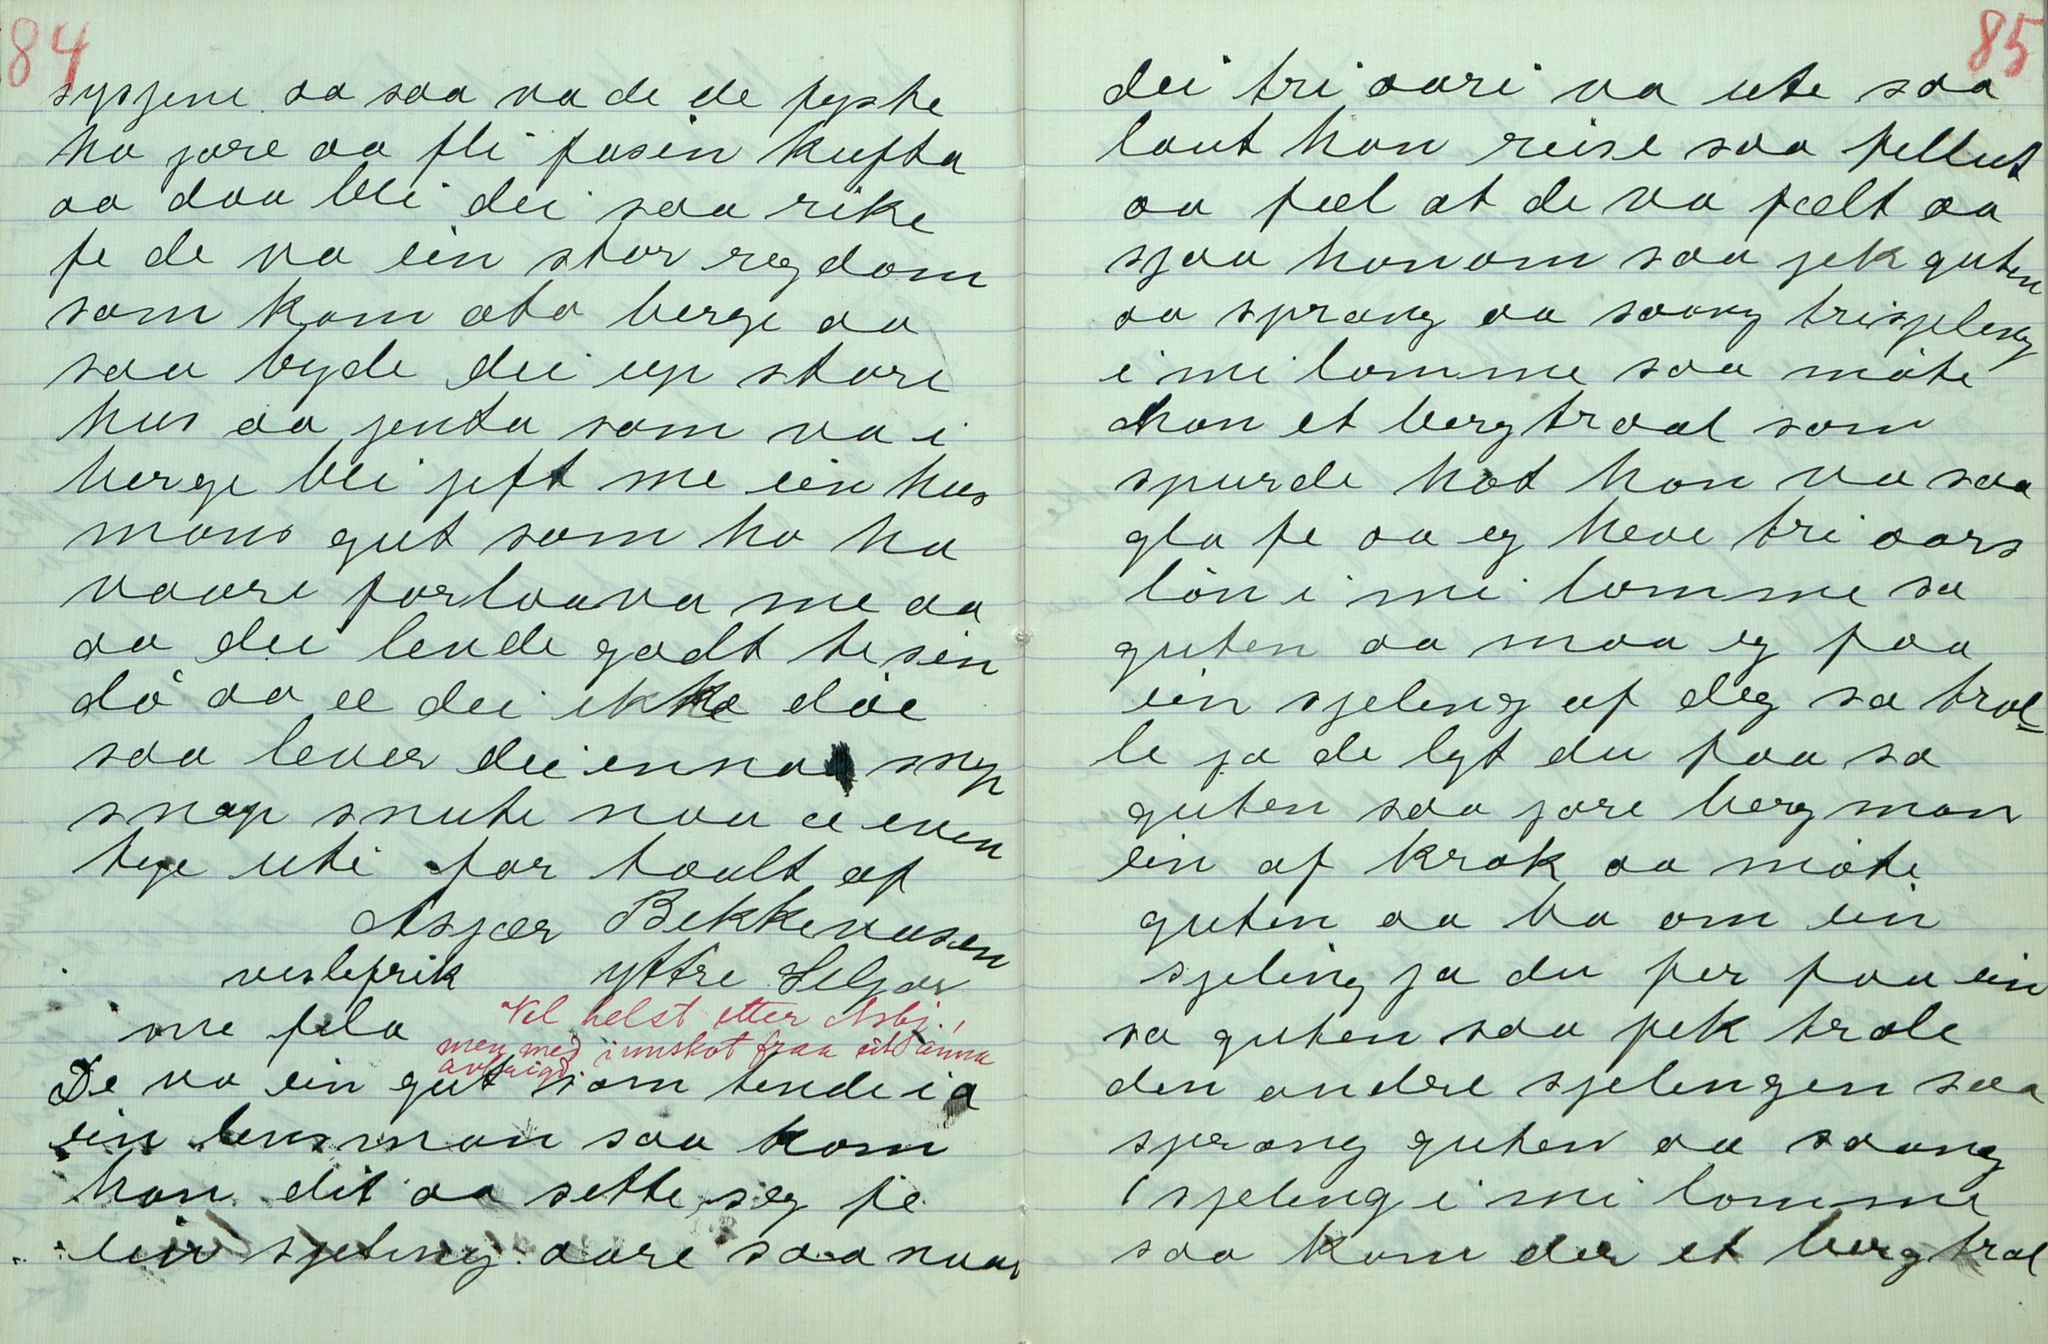 84
sysjene aa saa va de de fyste
ho jore aa fli fusin kufta
aa daa blei dei saa rike
fe de va ein stor regdom
som kom ato berge aa
saa bygde dei up store
hus aa jenta som va i
berge blei jeft me ein hus
mans gut som ho ha
vaare forlaava me aa
aa dei levde godt te sin
dö aa ee dei ikke döe
saa lever dei ennaa snip
snap snute naa æ even
tye uti for taalt af
Asjær Bekkevasen
veslefrik yttre Seljor
me fela
Vel helst etter Asbj,
men med innskot fraa eit anna
avbrigd.
De va ein gut som tende ia
ein lensman saa kom
han dit aa sette seg fe
ein sjeling aare saa naar
85
dei tri aari va ute saa
laut han reise saa fellut
aa fæl at de va fælt aa
sjaa honom saa jek guten
aa sprang aa saang trisjeling
i mi lomme saa möte
han et bergtraal som
spurde hot han va saa
gla fe aa eg heve tri aars
lön i mi lomme sa
guten aa maa eg faa
ein sjeling af deg sa trol=
le ja de lyt du faa sa
guten saa jore bergman
ein af krok aa möte
guten aa ba om ein
sjeling ja du fær faa ein
sa guten saa fek trole
den andre sjelingen saa
sprang guten aa saang
1 sjeling i mi lomme
saa kom der et bergtrol